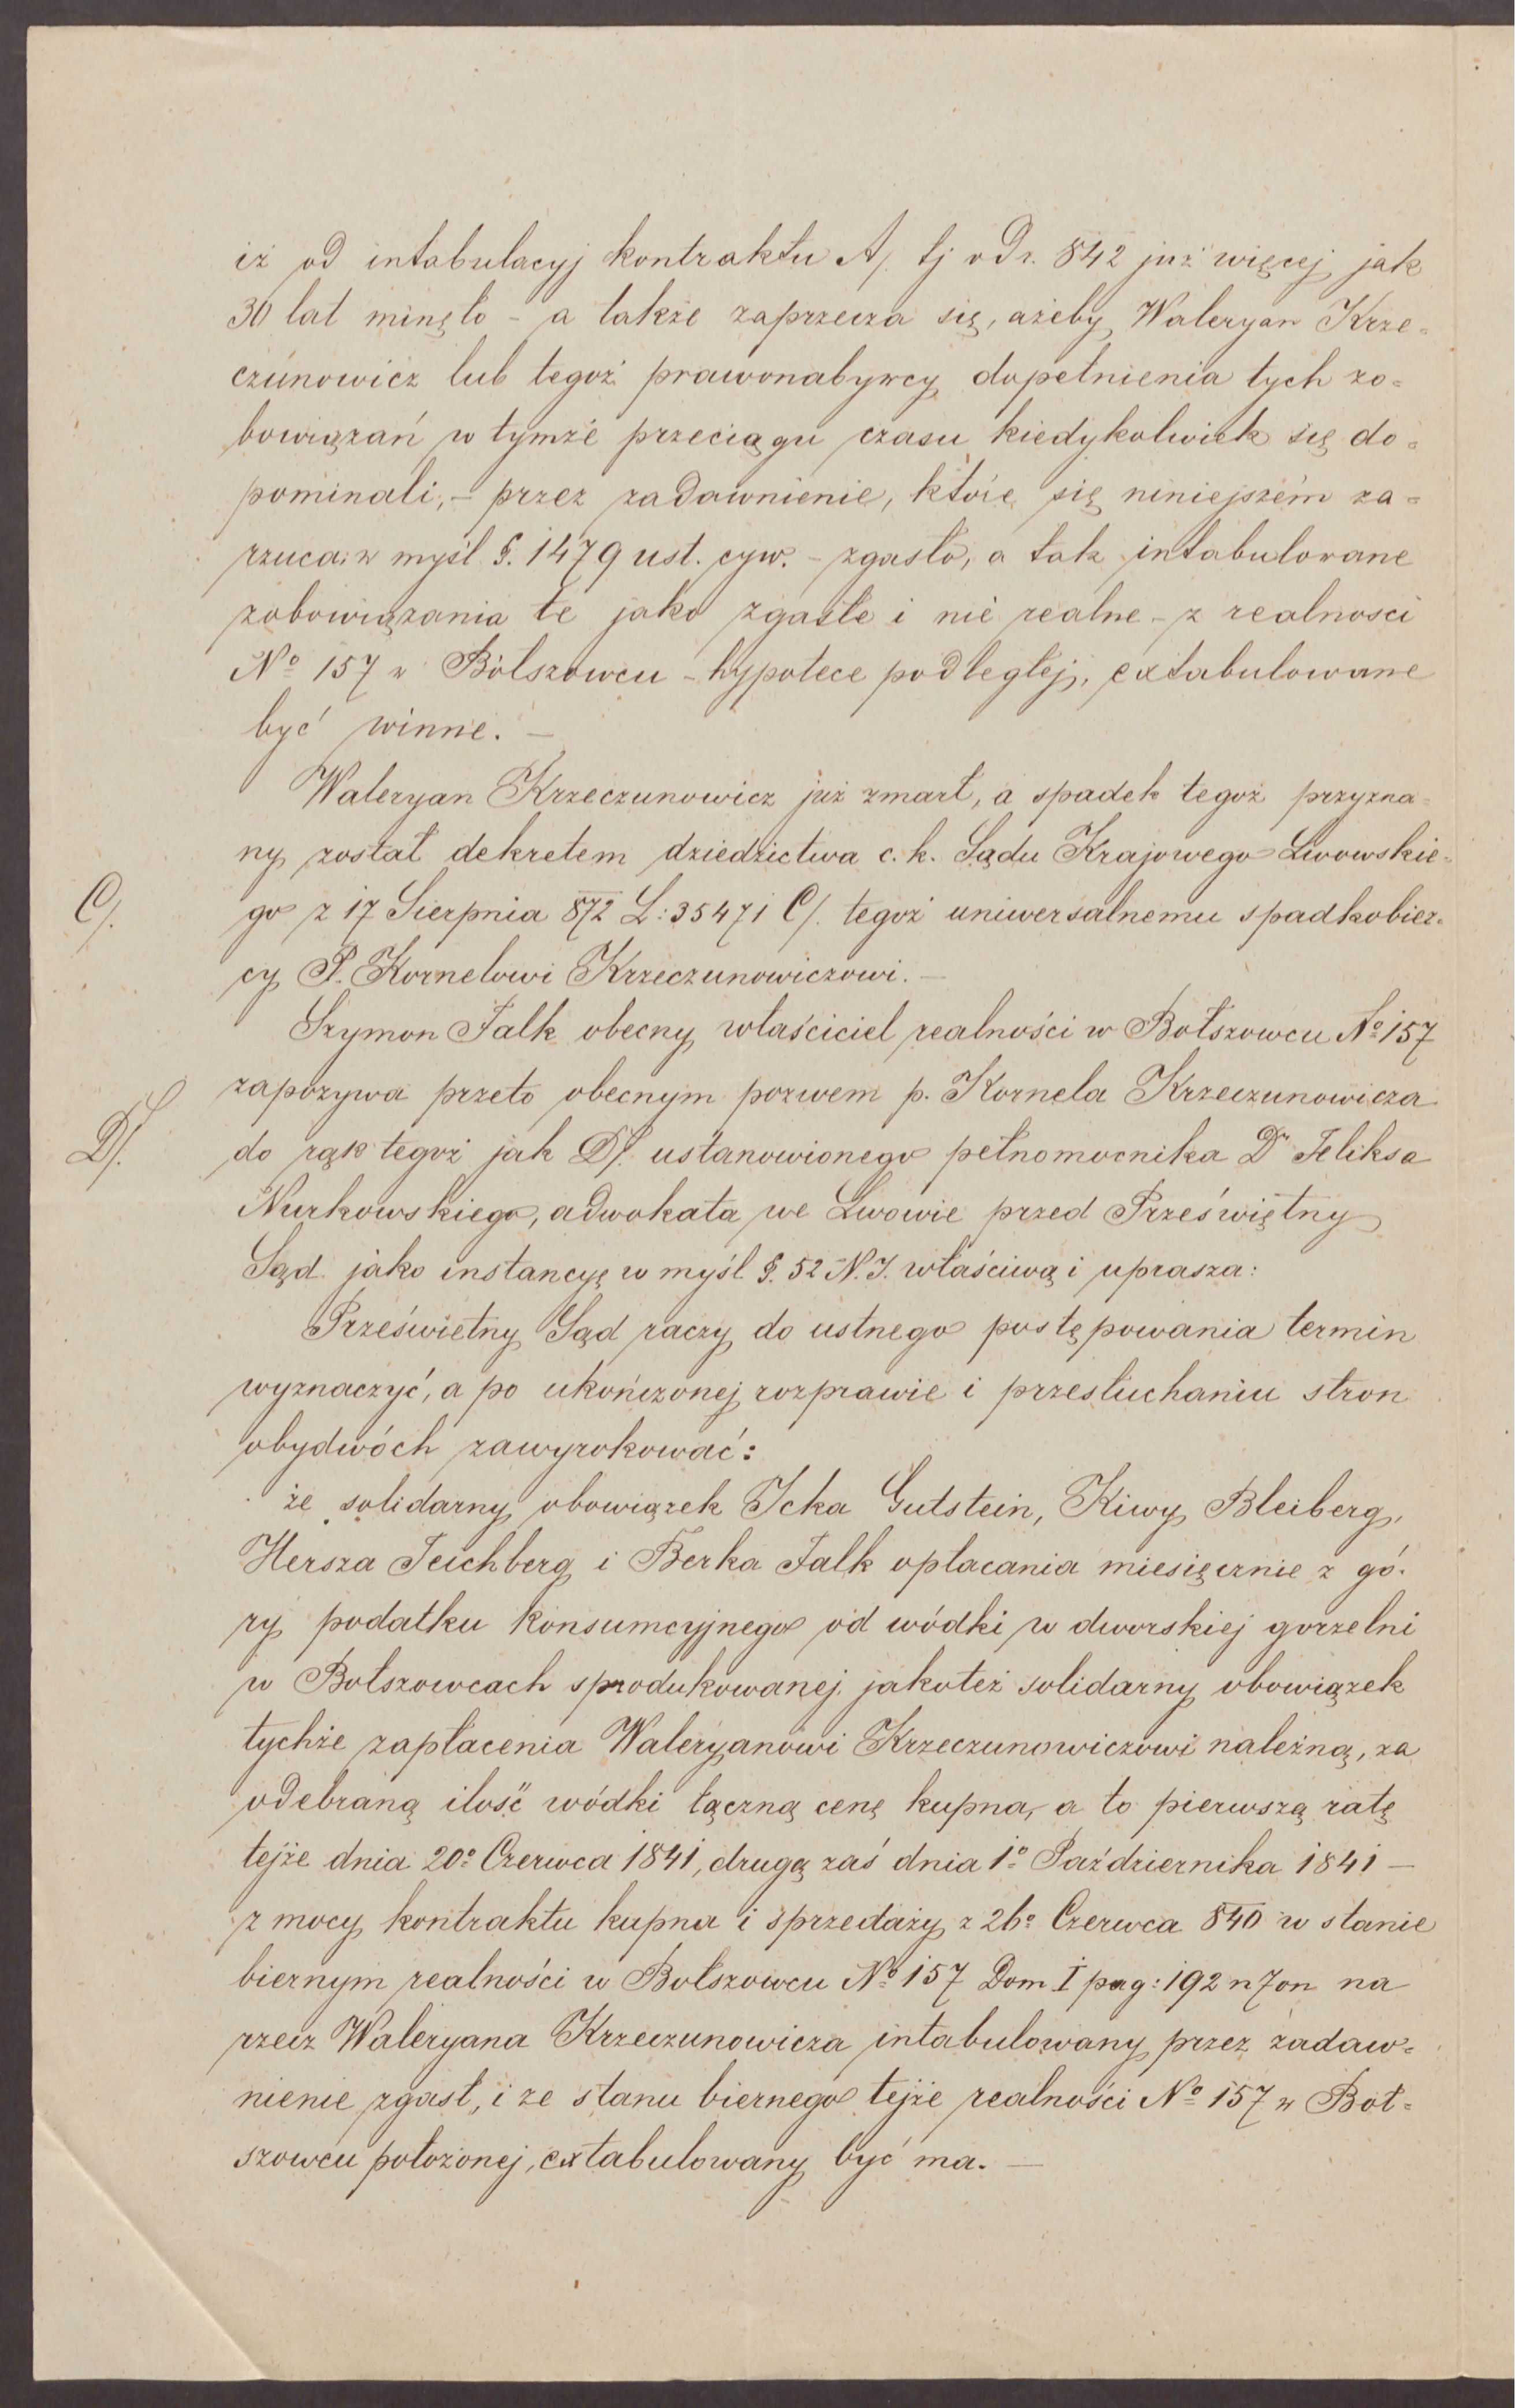 iż od intabulacyj kontraktu A/. tj od r. 842 już więcej jak
30 lat minęło - a także zaprzecza się, ażeby Waleryan Krze=
czunowicz lub tegoż prawonabywcy dopełnienia tych zo=
bowiązań w tymże przeciągu czasu kiedykolwiek się do=
pominali, - przez zadawnienie, które się niniejszém za=
rzuca w myśl §. 1479 ust. cyw. - zgasło, a tak intabulowane
zobowiązania te jako zgasłe i nie realne - z realnosci
No 157 w Bołszowcu - hypotece podległej, extabulowane
być winne. -
Waleryan Krzeczunowicz już zmarł, a spadek tegoż przyzna=
ny został dekretem dziedzictwa c. k. Sądu Krajowego Lwowskie=
C/.
go z 17 Sierpnia 872 L: 35471 C/. tegoż uniwersalnemu spadkobier=
cy P. Kornelowi Krzeczunowiczowi. -
Szymon Falk obecny właściciel realności w Bołszowcu No 157
zapozywa przeto obecnym pozwem p. Kornela Krzeczunowicza
D/.
do rąk tegoż jak D/. ustanowionego pełnomocnika Dr Feliksa
Nurkowskiego, adwokata we Lwowie przed Przeświętny
Sąd jako instancyę w myśl §. 52 N. J. właściwą i uprasza:
Prześwietny Sąd raczy do ustnego postępowania termin
wyznaczyć, a po ukończonej rozprawie i przesłuchaniu stron
obydwóch zawyrokować:
że solidarny obowiązek Icka Gutstein, Kiwy Bleiberg,
Hersza Teichberg i Berka Falk opłacania miesięcznie z gó=
ry podatku konsumcyjnego od wódki w dworskiej gorzelni
w Bołszowcach sprodukowanej jakoteż solidarny obowiązek
tychże zapłacenia Waleryanowi Krzeczunowiczowi należną, za
odebraną ilość wódki łączną cenę kupna, a to pierwszą ratę
tejże dnia 20o Czerwca 1841, drugą zaś dnia 1o Października 1841 -
z mocy kontraktu kupna i sprzedaży z 26o Czerwca 840 w stanie
biernym realności w Bołszowcu No 157 Dom I pag: 192 n 7 on na
rzecz Waleryana Krzeczunowicza intabulowany przez zadaw=
nienie zgasł, i ze stanu biernego tejże realności No 157 w Boł=
szowcu położonej, extabulowany być ma. -